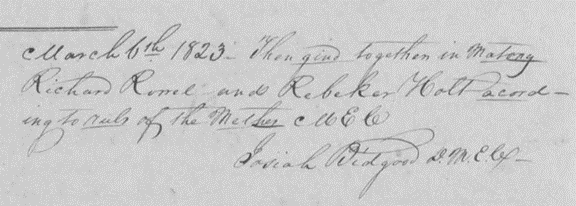 March 6th 1823 - Then gind together in Matony
Richard Rowel and Rebeker Holt acord-
ing to ruls of the Methes M E C
Josiah Bidgood D. M. E. C -